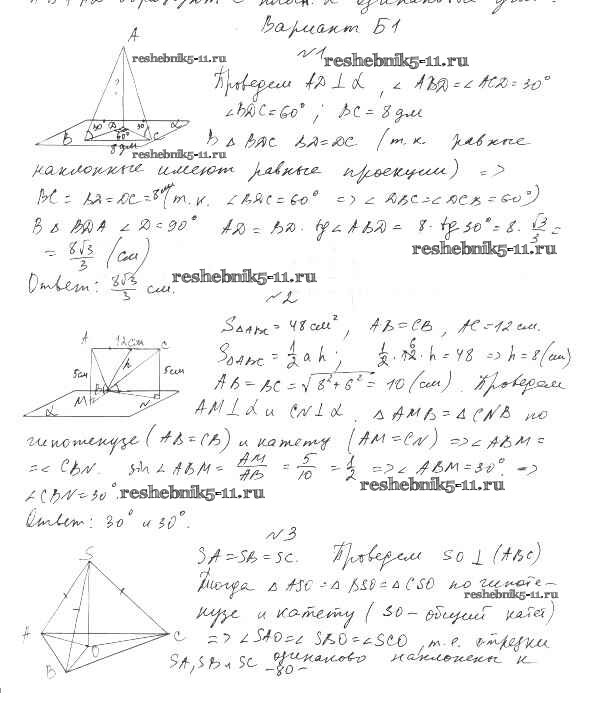 Вариант Б1
№1
reshebnik5-11.ru
Проведем AD ⊥ α, ∠ABD = ∠ACD = 30°
∠BDC = 60°; BC = 8 дм
В △BDC BD = DC (т.к. равные
наклонные имеют равные проекции) =>
BC = BD = DC = 8 дм (т.к. ∠BDC = 60° => ∠DBC = ∠DCB = 60°)
В △BDA ∠D = 90° AD = BD · tg∠ABD = 8 · tg30° = 8 · √3/3 =
= 8√3/3 (см)
Ответ: 8√3/3 см.
A
reshebnik5-11.ru
?
B 30° D 30° C α
60°
8 дм
reshebnik5-11.ru
reshebnik5-11.ru
reshebnik5-11.ru
№2
S△ABC = 48 см², AB = CB, AC = 12 см.
S△ABC = 1/2 a h; 1/2 · 12 · h = 48 => h = 8 (см)
6
AB = BC = √8² + 6² = 10 (см). Проведем
AM ⊥ α и CN ⊥ α. △AMB = △CNB по
гипотенузе (AB = CB) и катету (AM = CN) => ∠ABM =
= ∠CBN. sin∠ABM = AM/AB = 5/10 = 1/2 => ∠ABM = 30°. =>
∠CBN = 30°.
Ответ: 30° и 30°.
A 12см C
5см h 5см
M B N
α
reshebnik5-11.ru
reshebnik5-11.ru
№3
SA = SB = SC. Проведем SO ⊥ (ABC)
Тогда △ASO = △BSO = △CSO по гипоте-
reshebnik5-11.ru
нузе и катету (SO – общий катет)
=> ∠SAO = ∠SBO = ∠SCO, т.е. отрезки
SA, SB и SC одинаково наклонены к
S
A C
O
B
-80-